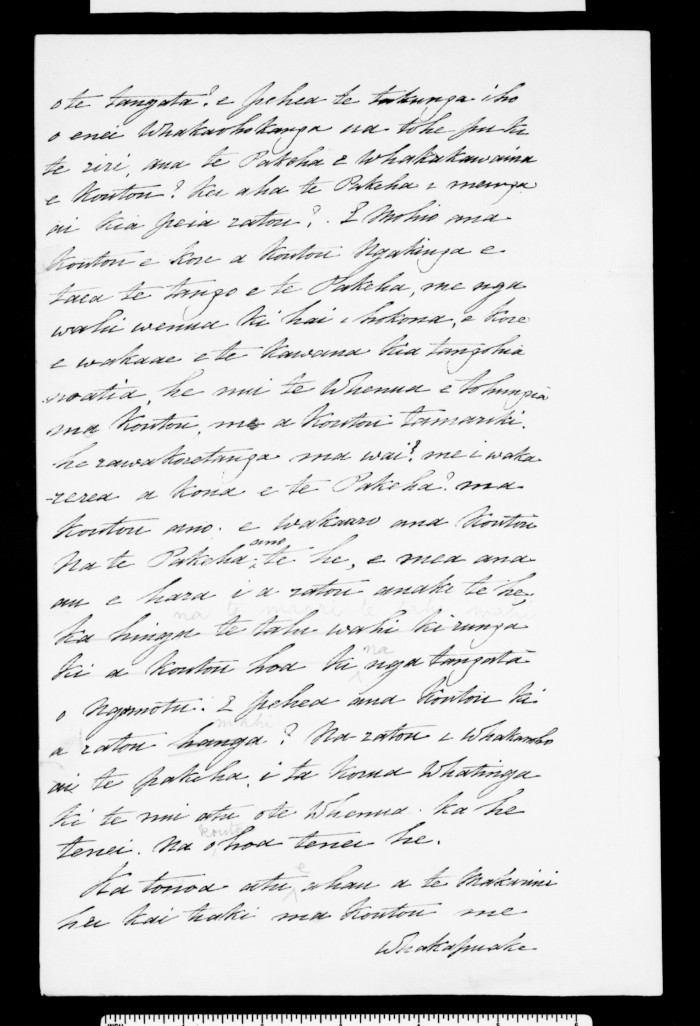 o te tangata? e pehea te tukunga iho
o enei Whakaohokanga na tohe pu ki
te riri, ana te Pakeha e whakakawaina
e Koutou? Kei aha te Pakeha e meinga
ai Kia peia ratou? . E Mohio ana
Koutou e kore a Koutou Ngakinga e
taea te tango e te Pakeha, me nga
wahi wenua Ki hai i hokona, e kore
e wakaae e te Kawana Kia tangohia
noatia, he nui te Whenua e tohungia
ma Koutou, me a Koutou tamariki.
he rawakoretanga ma wai? me i waka
-rerea a Kona e te Pakeha? ma
Koutou ano. e wakaaro ana Koutou
Na te Pakeha ano te he, e mea ana
au e hara i a ratou anake te he
na te
Ka hinga te tahi wahi ki runga
na
Ki a Koutou hoa ki nga tangata
o Ngamotu. E pehea ana Koutou ki
mahi
a ratou hanga? Na ratou i Whakaroho
ai te pakeha, i ta Korua Whatinga
Ki te nui atu o te Whenua. Ka he
kouto
tenei. Na o hoa tenei he.
e
Ka tonoa atu ahau a te Makarini
hei Kai haki ma Koutou me
Whakapuake